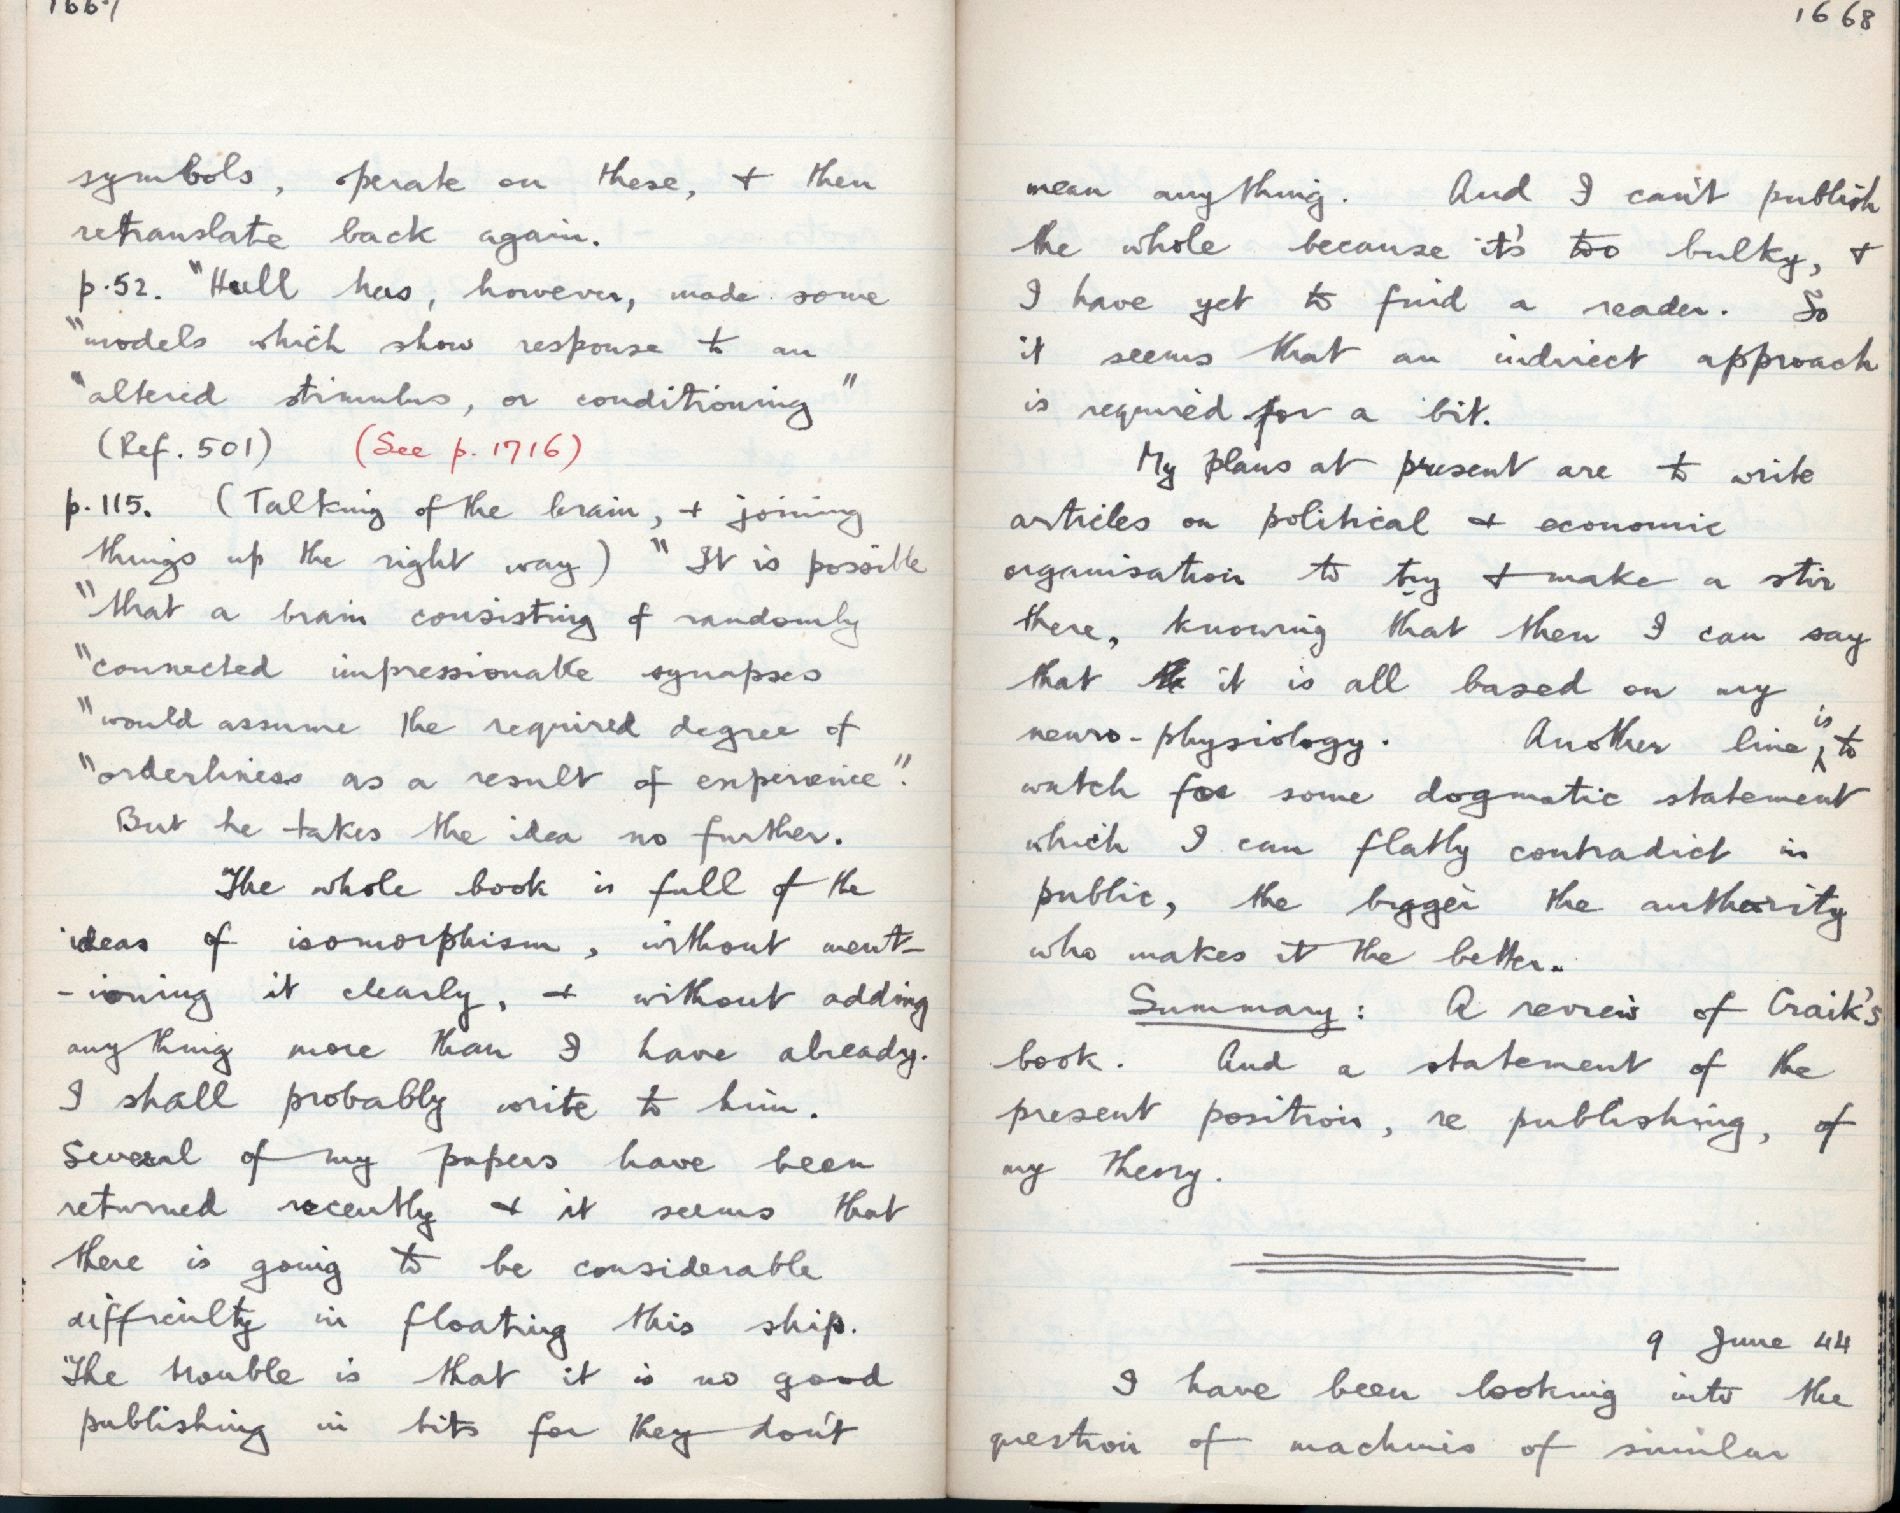 1667
symbols, operate on these, + then
retranslate back again.
p.52. "Hull has, however, made some
"models which show response to an
"altered stimulus, or conditioning"
(Ref. 501) (See p. 1716)
p.115. (Talking of the brain, + joining
things up the right way) "It is possible
"that a brain consisting of randomly
"connected impressionable synapses
"would assume the required degree of
"orderliness as a result of experience".
But he takes the idea no further.
The whole book is full of the
ideas of isomorphism, without ment-
-ioning it clearly, + without adding
anything more than I have already.
I shall probably write to him.
Several of my papers have been
returned recently + it seems that
there is going to be considerable
difficulty in floating this ship.
The trouble is that it is no good
publishing in bits for they don't
1668
mean anything. And I can't publish
the whole because it's too bulky, +
I have yet to find a reader. So
it seems that an indirect approach
is required for a bit.
My plans at present are to write
articles on political + economic
organisation to try + make a stir
there, knowing that then I can say
that it is all based on my
neuro-physiology. Another line is to
watch for some dogmatic statement
which I can flatly contradict in
public, the bigger the authority
who makes it the better.
Summary: A review of Craik's
book. And a statement of the
present position, re publishing, of
my theory.
9 June 44
I have been looking into the
question of machines of similar